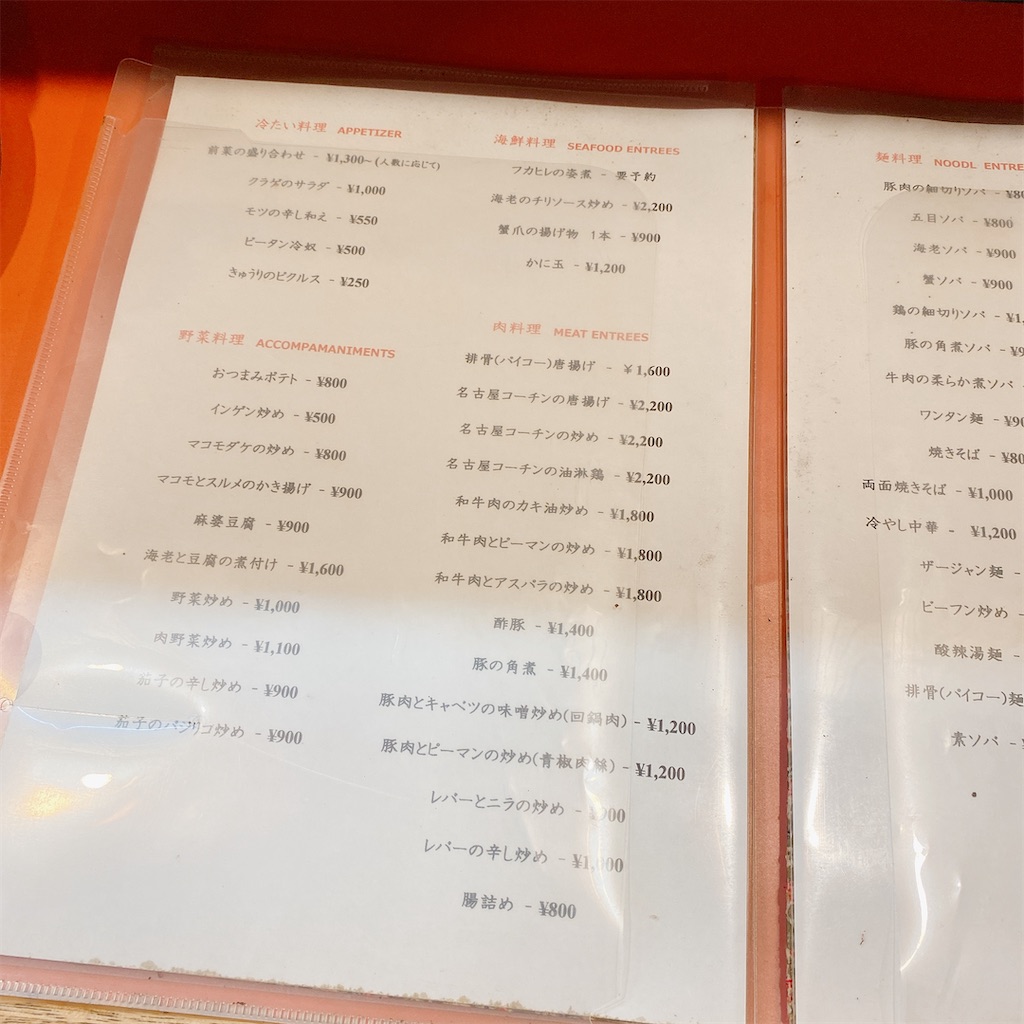 冷たい料理 APPETIZER
前菜の盛り合わせ - ¥1,300~ (人数に応じて)
クラゲのサラダ - ¥1,000
モツの辛し和え - ¥550
ピータン冷奴 - ¥500
きゅうりのピクルス - ¥250
野菜料理 ACCOMPAMANIMENTS
おつまみポテト - ¥800
インゲン炒め - ¥500
マコモダケの炒め - ¥800
マコモとスルメのかき揚げ - ¥900
麻婆豆腐 - ¥900
海老と豆腐の煮付け - ¥1,600
野菜炒め - ¥1,000
肉野菜炒め - ¥1,100
茄子の辛し炒め - ¥900
茄子のバジリコ炒め - ¥900
海鮮料理 SEAFOOD ENTREES
フカヒレの姿煮 - 要予約
海老のチリソース炒め - ¥2,200
蟹爪の揚げ物 1本 - ¥900
かに玉 - ¥1,200
肉料理 MEAT ENTREES
排骨(パイコー)唐揚げ - ¥1,600
名古屋コーチンの唐揚げ - ¥2,200
名古屋コーチンの炒め - ¥2,200
名古屋コーチンの油淋鶏 - ¥2,200
和牛肉のカキ油炒め - ¥1,800
和牛肉とピーマンの炒め - ¥1,800
和牛肉とアスパラの炒め - ¥1,800
酢豚 - ¥1,400
豚の角煮 - ¥1,400
豚肉とキャベツの味噌炒め(回鍋肉) - ¥1,200
豚肉とピーマンの炒め(青椒肉絲) - ¥1,200
レバーとニラの炒め - ¥900
レバーの辛し炒め - ¥1,000
腸詰め - ¥800
麺料理 NOODL ENTRE
豚肉の細切りソバ - ¥80
五目ソバ - ¥800
海老ソバ - ¥900
蟹ソバ - ¥900
鶏の細切りソバ - ¥1,
豚の角煮ソバ - ¥9
牛肉の柔らか煮ソバ -
ワンタン麺 - ¥90
焼きそば - ¥80
両面焼きそば - ¥1,000
冷やし中華 - ¥1,200
ザージャン麺 -
ビーフン炒め -
酸辣湯麺 -
排骨(パイコー)麺
素ソバ - ¥